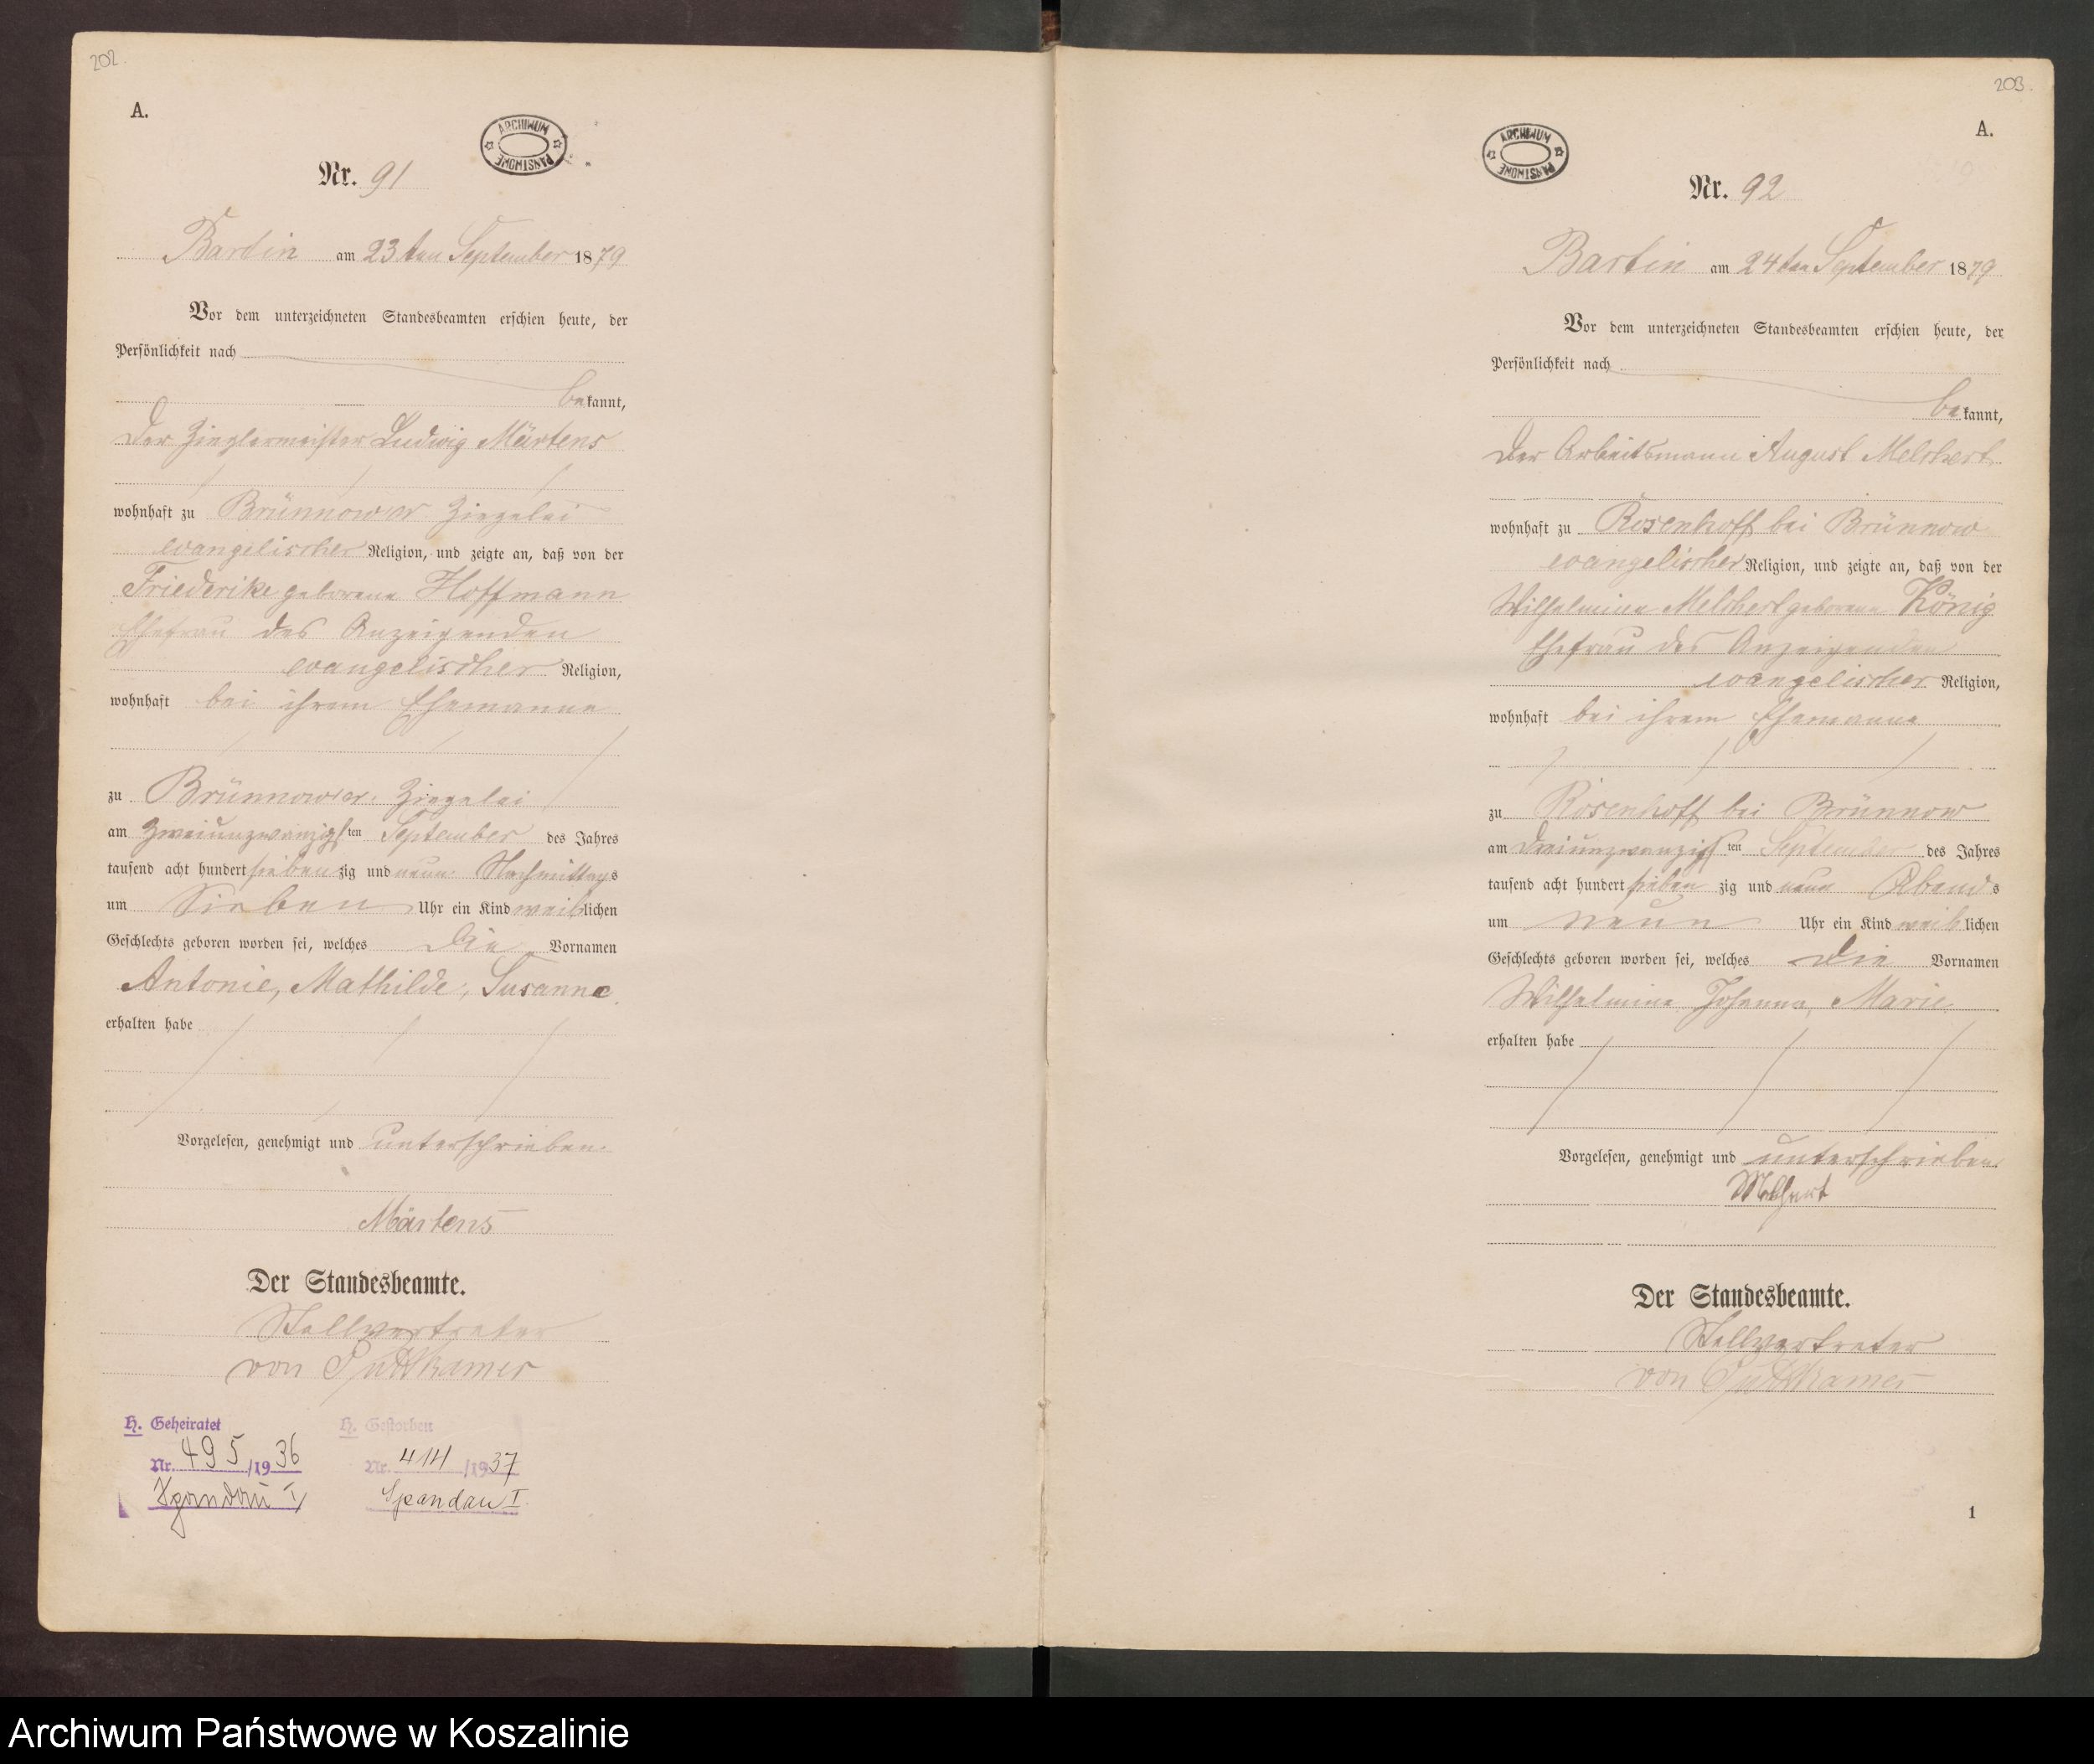 202.
A.
ARCHIWUM PAŃSTWOWE
Nr. 91
Bartin am 23ten September 1879
Vor dem unterzeichneten Standesbeamten erschien heute, der
Persönlichkeit nach
bekannt,
der Zieglermeister Ludwig Märtens
wohnhaft zu Brünnower Ziegelei
evangelischer Religion, und zeigte an, daß von der
Friederike geborene Hoffmann
Ehefrau des Anzeigenden
evangelischer Religion,
wohnhaft bei ihrem Ehemanne
zu Brünnower Ziegelei
am zweiunzwanzigsten September des Jahres
tausend acht hundert siebenzig und neun Nachmittags
um Sieben Uhr ein Kind weiblichen
Geschlechts geboren worden sei, welches die Vornamen
Antonie, Mathilde, Susanne
erhalten habe
Vorgelesen, genehmigt und unterschrieben.
Märtens
Der Standesbeamte.
Stellvertreter
von Puttkamer
H. Geheiratet
Nr. 495/1936
Spandau I
H. Gestorben
Nr. 414/1937
Spandau I.
203.
A.
ARCHIWUM PAŃSTWOWE
Nr. 92
Bartin am 24ten September 1879
Vor dem unterzeichneten Standesbeamten erschien heute, der
Persönlichkeit nach
bekannt,
der Arbeitsmann August Melchert
wohnhaft zu Rosenhoff bei Brünnow
evangelischer Religion, und zeigte an, daß von der
Wilhelmine Melchert geborene König
Ehefrau des Anzeigenden
evangelischer Religion,
wohnhaft bei ihrem Ehemanne
zu Rosenhoff bei Brünnow
am dreiunzwanzigsten September des Jahres
tausend acht hundert siebenzig und neun Abends
um neun Uhr ein Kind weiblichen
Geschlechts geboren worden sei, welches die Vornamen
Wilhelmine Johanna, Marie
erhalten habe
Vorgelesen, genehmigt und unterschrieben.
Melchert
Der Standesbeamte.
Stellvertreter
von Puttkamer
1
Archiwum Państwowe w Koszalinie